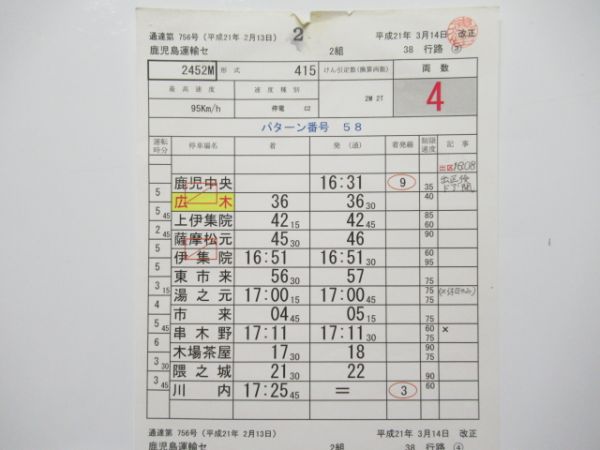 通達第 756号 (平成21年 2月13日) 2 平成21年 3月14日 改正
鹿児島運輸セ 2組 38 行路
2452M 形式 415 けん引定数(換算両数) 両数
最高速度 速度種別 2M 2T 4
95Km/h 停電 C2
パターン番号 58
運転時分 停車場名 着 発(通) 着発線 制限速度 記事
出区1608
鹿児中央 16:31 9 35
5 広木 36 36 30 40
5 45 上伊集院 42 15 42 45 85
2 45 薩摩松元 45 30 46 60 90
5 伊集院 16:51 16:51 30 60 95
5 東市来 56 30 57 75
3 15 湯之元 17:00 15 17:00 45 75 75
4 市来 04 45 05 15 75
5 45 串木野 17:11 17:11 30 60 75 ×
6 木場茶屋 17 30 18 90
3 30 隈之城 21 30 22 75 90
3 45 川内 17:25 45 = 3 60
通達第 756号 (平成21年 2月13日) 平成21年 3月14日 改正
鹿児島運輸セ 2組 38 行路 ④